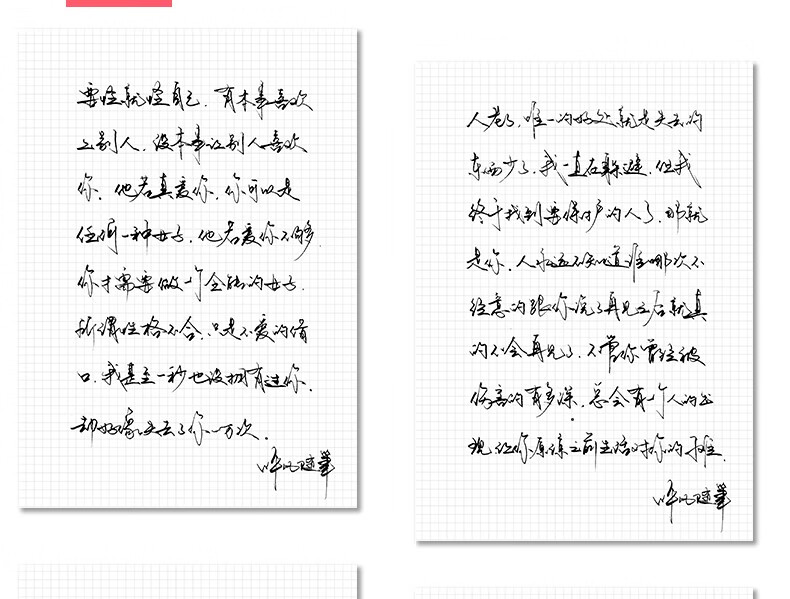 要怪就怪自己，有本事喜欢
上别人，没本事让别人喜欢
你。他若真爱你，你可以是
任何一种女子，他若爱你不够
你才需要做一个全能的女子，
所谓性格不合，只是不爱的借
口，我甚至一秒也没拥有过你，
却好像失去了你一万次。
吟风随笔
人老了，唯一的好处就是失去的
东西少了，我一直在躲避，但我
终于找到要保护的人了，那就
是你，人永远不知道谁哪次不
经意的跟你说了再见之后就真
的不会再见了，不管你曾经被
伤害的有多深，总会有一个人的出
现让你原谅之前生活对你的刁难。
吟风随笔